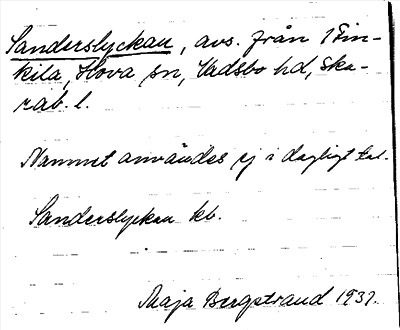 Sanderslyckan, avs. från 1 Fin-
kila, Hova sn, Vadsbo hd, Ska-
rab. l.
Namnet användes ej i dagligt tal.
Sanderslyckan kb.
Maja Bergstrand 1937.